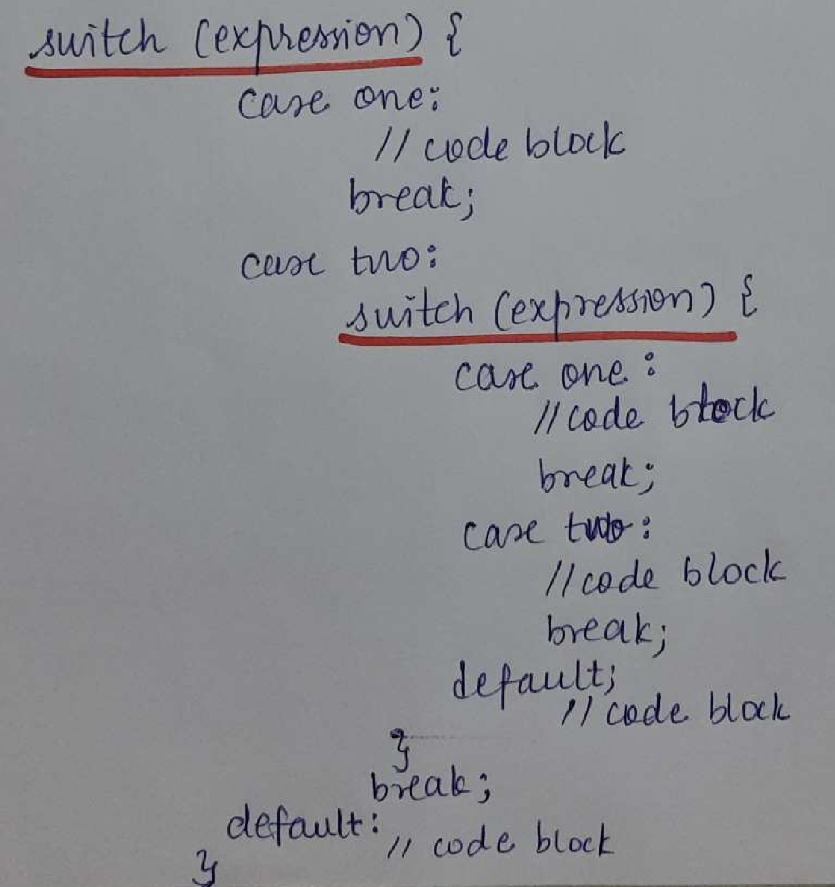 switch (expression) {
case one:
// code block
break;
case two:
switch (expression) {
case one:
// code block
break;
case two:
// code block
break;
default;
// code block
}
break;
default:
// code block
}